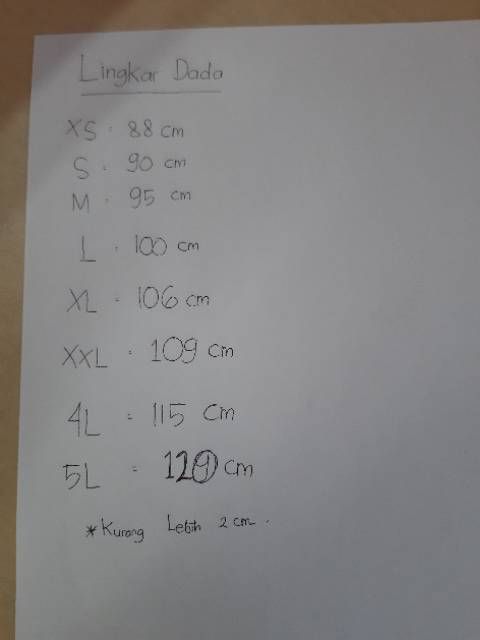 Lingkar Dada
XS : 88 cm
S : 90 cm
M : 95 cm
L : 100 cm
XL = 106 cm
XXL : 109 cm
4L = 115 cm
5L = cm
* Kurang Lebih 2 cm.